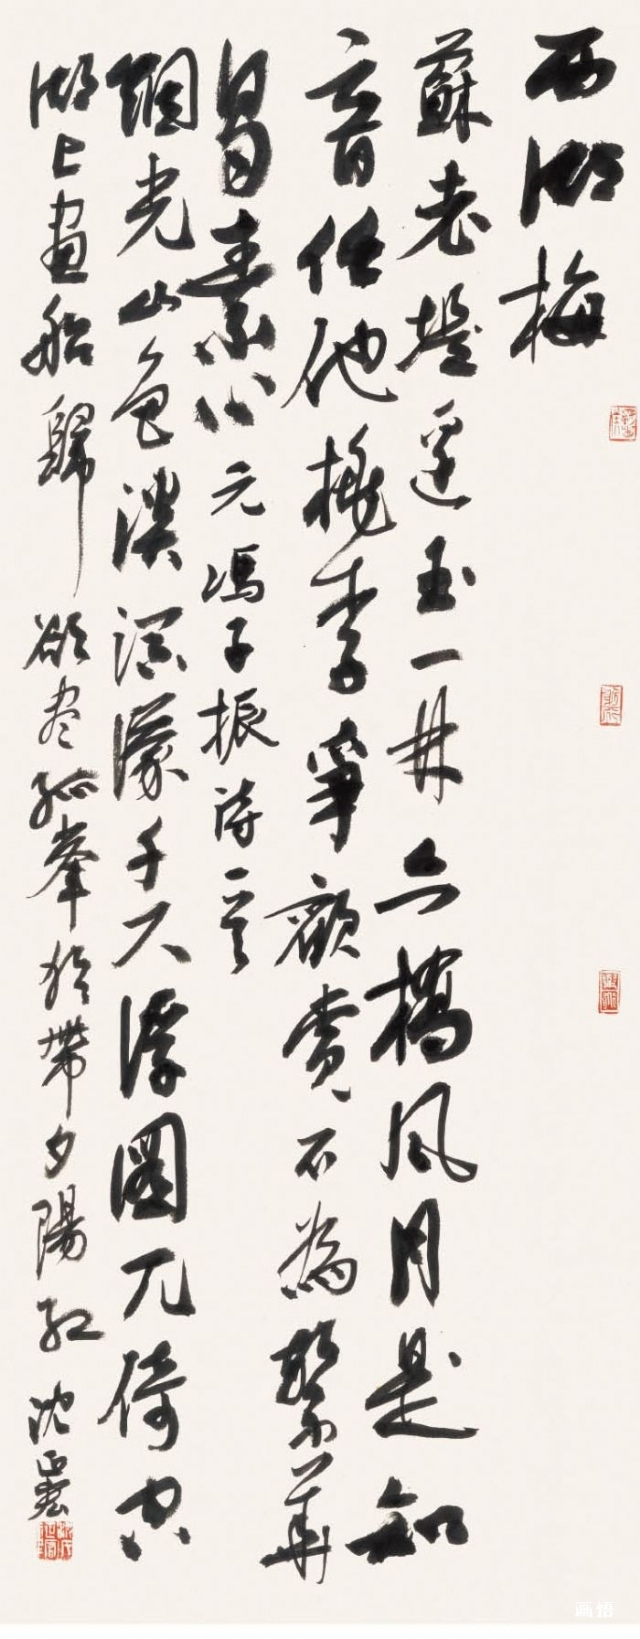 西湖梅
蘇老堤邊玉一林六橋風月是知
音任他桃李爭歡賞不為繁華
易素心 元馮子振詩一首
烟光山色淡溟濛千尺浮圖兀倚空
湖上畫船歸欲尽孤峯猶帶夕陽紅 沈
画悟